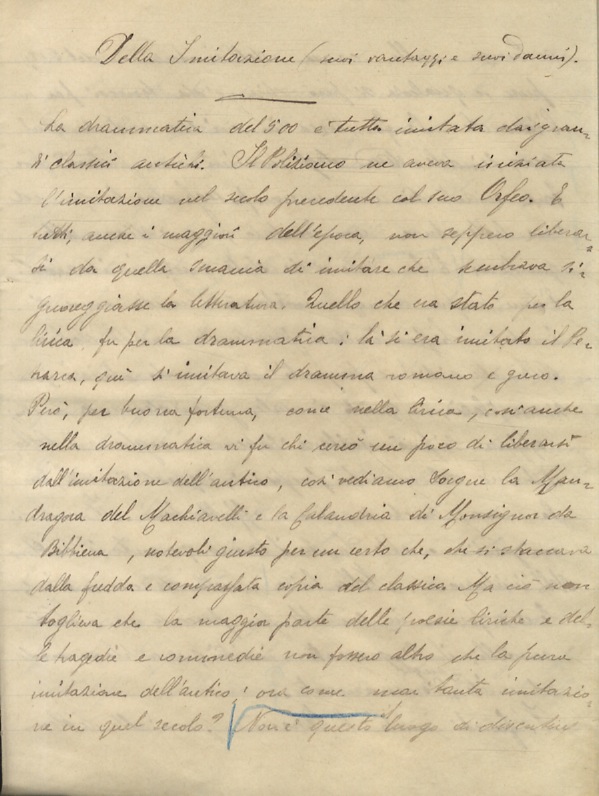 Della Imitazione (suoi vantaggi e suoi danni).
La drammatica del 500 è tutta imitata dai gran-
di classici antichi. Il Poliziano ne aveva iniziata
l'imitazione nel secolo precedente col suo Orfeo. E
tutti, anche i maggiori dell'epoca, non seppero liberar-
si da quella smania di imitare che sembrava si-
gnoreggiasse la letteratura. Quello che era stato per la
lirica fu per la drammatica: là si era imitato il Pe-
trarca, qui si imitava il dramma romano e greco.
Però, per buona fortuna, come nella lirica, così anche
nella drammatica vi fu chi cercò un poco di liberarsi
dall'imitazione dell'antico, così vediamo sorgere la Man-
dragora del Machiavelli e la Calandria di Monsignor da
Bibbiena, notevoli giusto per un certo che, che si staccava
dalla fredda e compassata copia del classico. Ma ciò non
toglieva che la maggior parte delle poesie liriche e del-
le tragedie e commedie non fossero altro che la pura
imitazione dell'antico: ora come mai tanta imitazio-
ne in quel secolo? Non è questo luogo di discutere